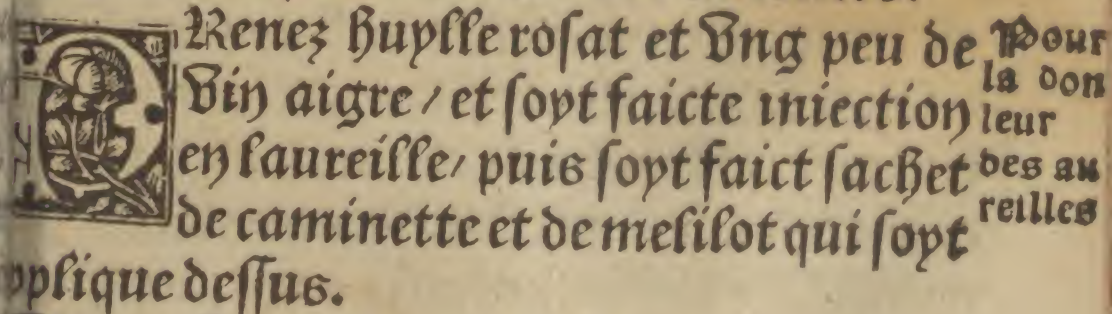 PRenez huylle rosat et vng peu de
vin aigre / et soyt faicte iniection
en laureille / puis soyt faict sachet
de caminette et de melilot qui soyt
pplique dessus.
Pour
la don
leur
des au
reilles